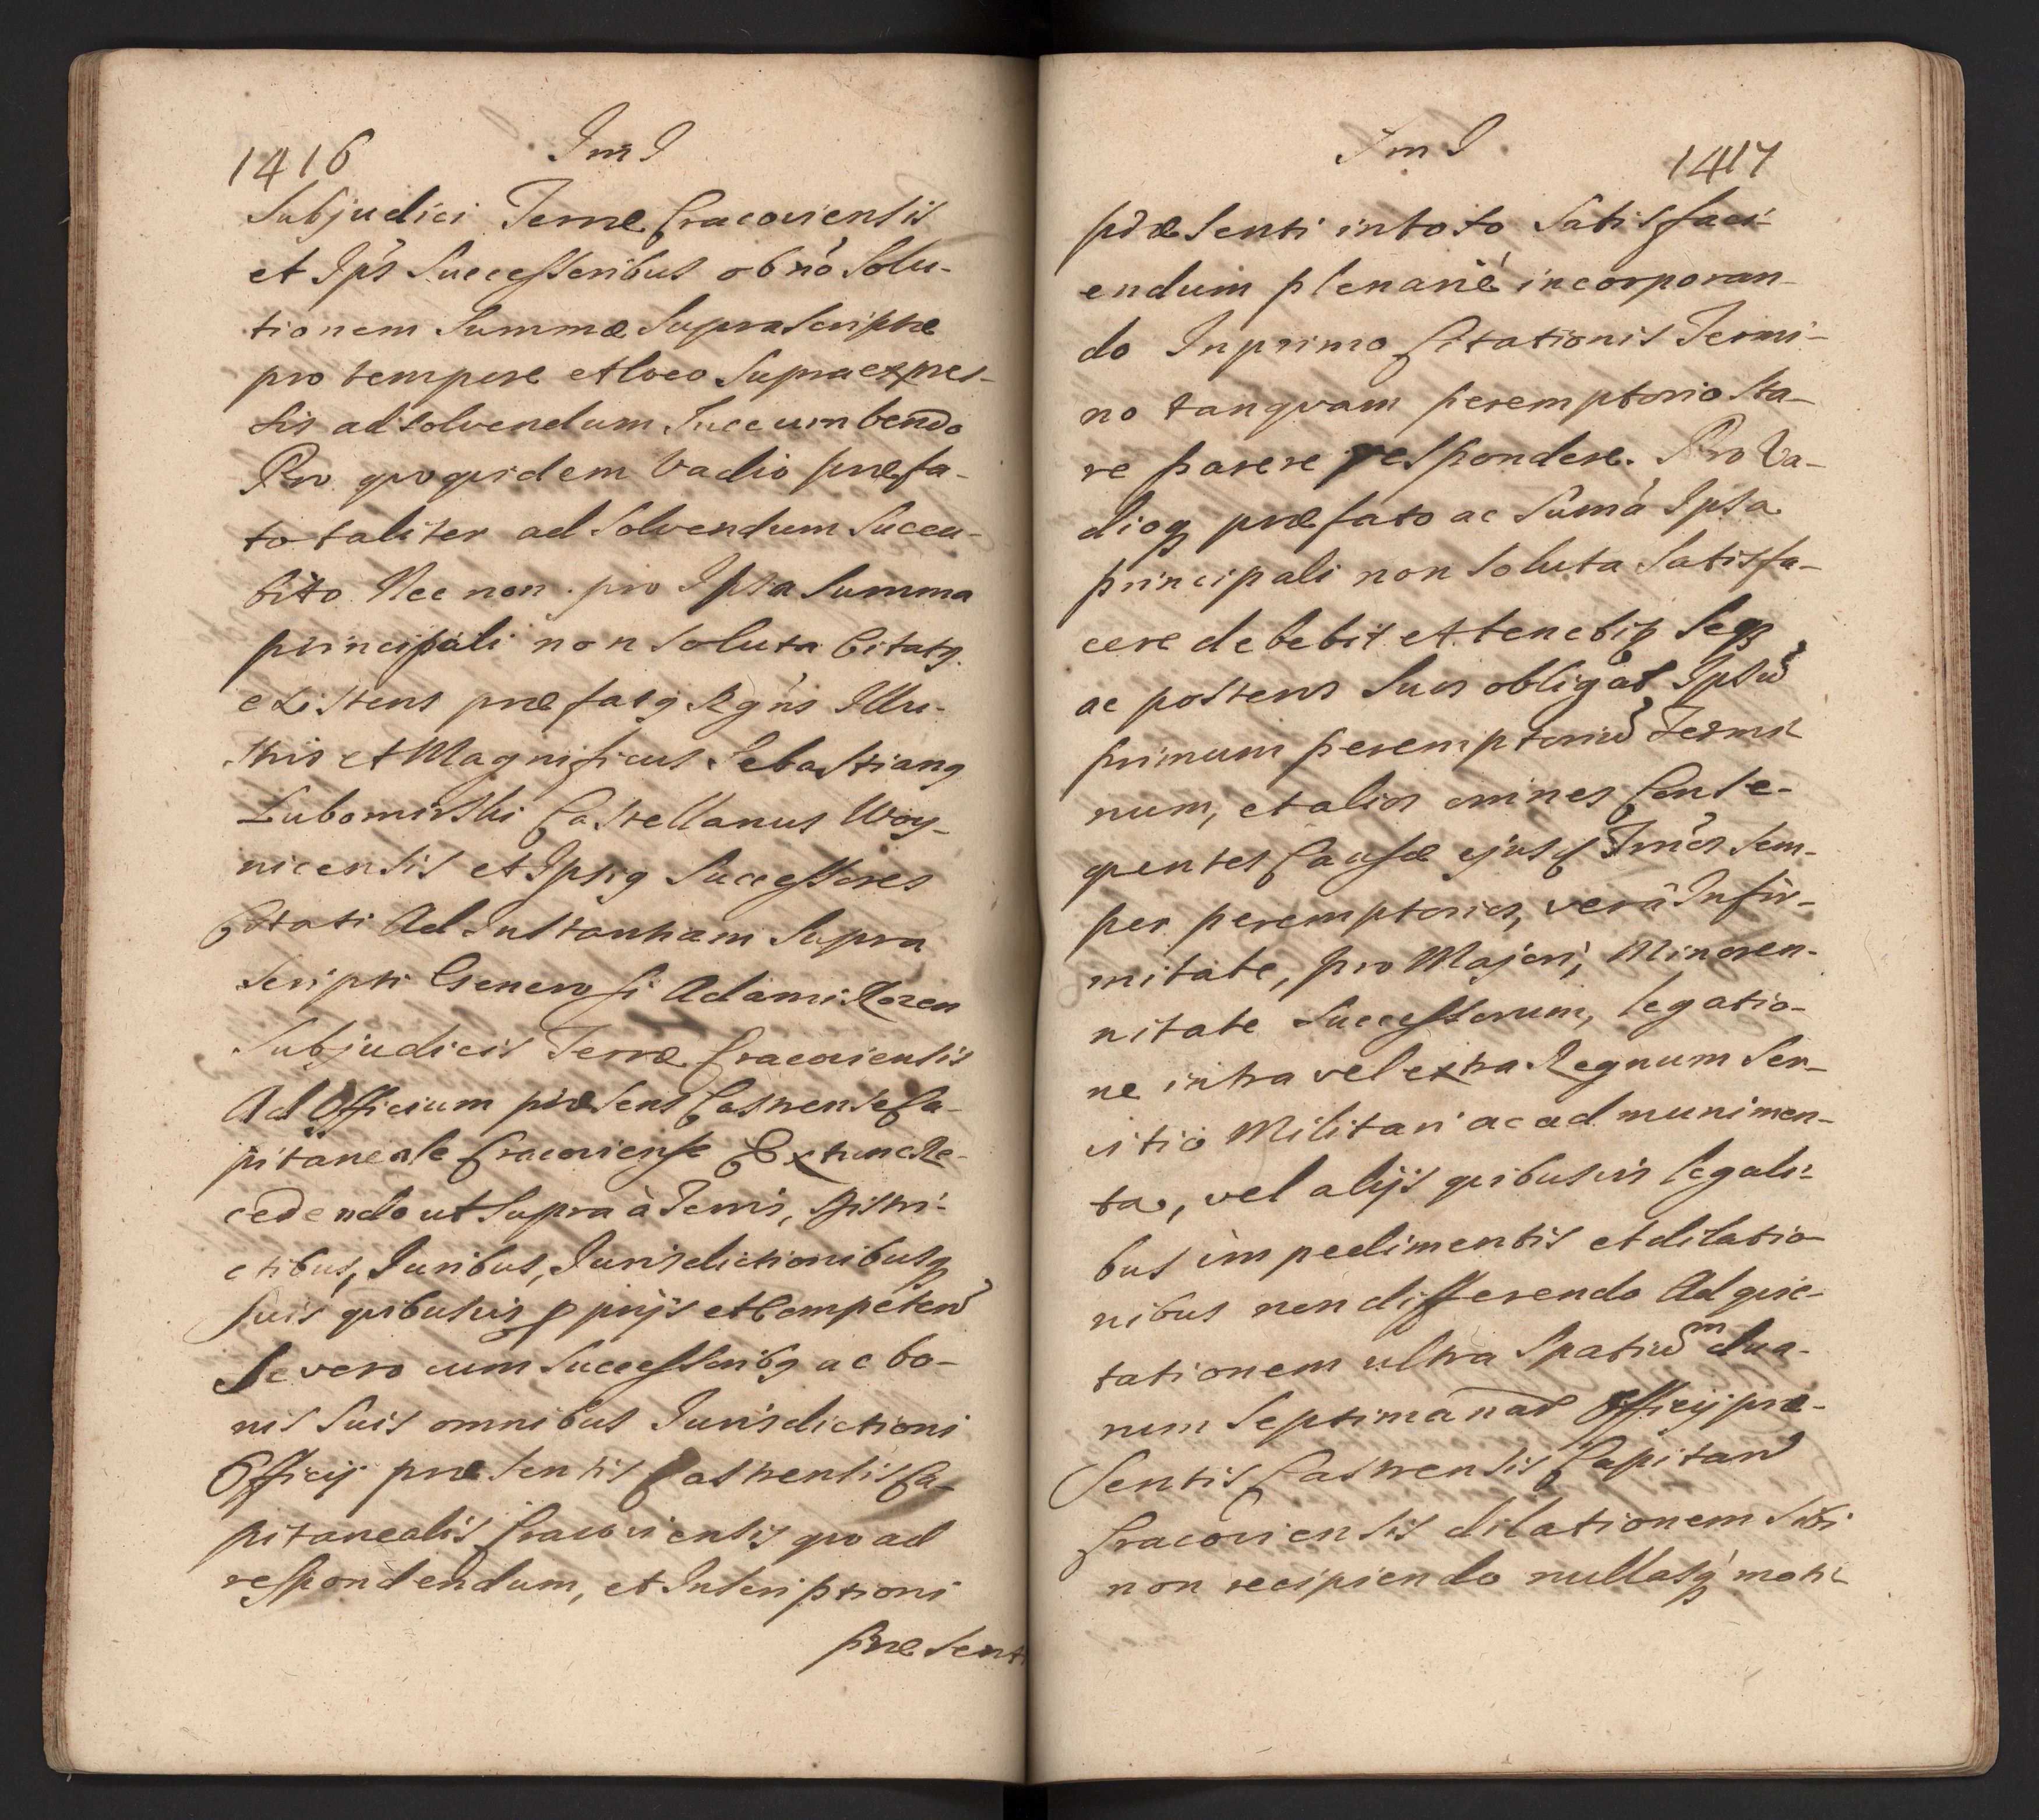 1416
ImI
Subjudici Terræ Cracoviensis
et Ips Successoribus ob nò Solu-
tionem Summæ Suprascriptæ
pro tempore et loco Supraexpres-
sis ad solvendum Succumbendo
Pro quoquidem Vadio præfa-
to taliter ad Solvendum Succu-
bito Nec non pro Ipsa Summa
principali non Soluta Citatq.
existens præfatq Rgns Illu-
stris et Magnificus Sebastianq
Lubomirski Castellanus Woy-
nicensis et Ipsiq Successores
Citati Ad Instantiam Supra
Scripti Generosi Adami
Subjudicis Terræ Cracoviensis
Ad Officium præsens Castrense Ca-
pitaneale Cracoviense Ex tunc Re-
cedendo ut Supra à Terris, Distri-
ctibus, Juribus, Jurisdictionibusq
Suis quibusvis pprijs et Competen
Se vero cum Successoribq ac bo-
nis Suis omnibus Jurisdictioni
Officij præsentis Castrensis Ca-
pitanealis Cracoviensis quo ad
respondendum, et Inscriptioni
præsenti
ImI
1417
præsenti in toto Satisfaci-
endum plenariè incorporan-
do In primo Citationis Termi-
no tanqvam peremptorio Sta-
re parere respondere. Pro Va-
dioq præfato ac Sumà Ipsa
principali non Soluta Satisfa-
cere debebit et tenebitq Seqq
ac posteros Suos obligat Ipsu
primum peremptoriu Termi-
num, et alios omnes Conse-
quentes Causæ ejusd Tmnos Sem-
per peremptorios, verâ Infir-
mitate, pro Majori, Minoren-
nitate Successorum, legatio-
ne intra vel extra Regnum Ser-
vitio Militari ac ad munimen-
ta, vel alijs quibusvis legali-
bus impedimentis et dilatio-
nibus non differendo Ad quie-
tationem ultra Spatiu m dua-
rum Septimanar Officij præ-
sentis Castrensis Capitan
Cracoviensis dilationem Sibi
non recipiendo nullasq moti-